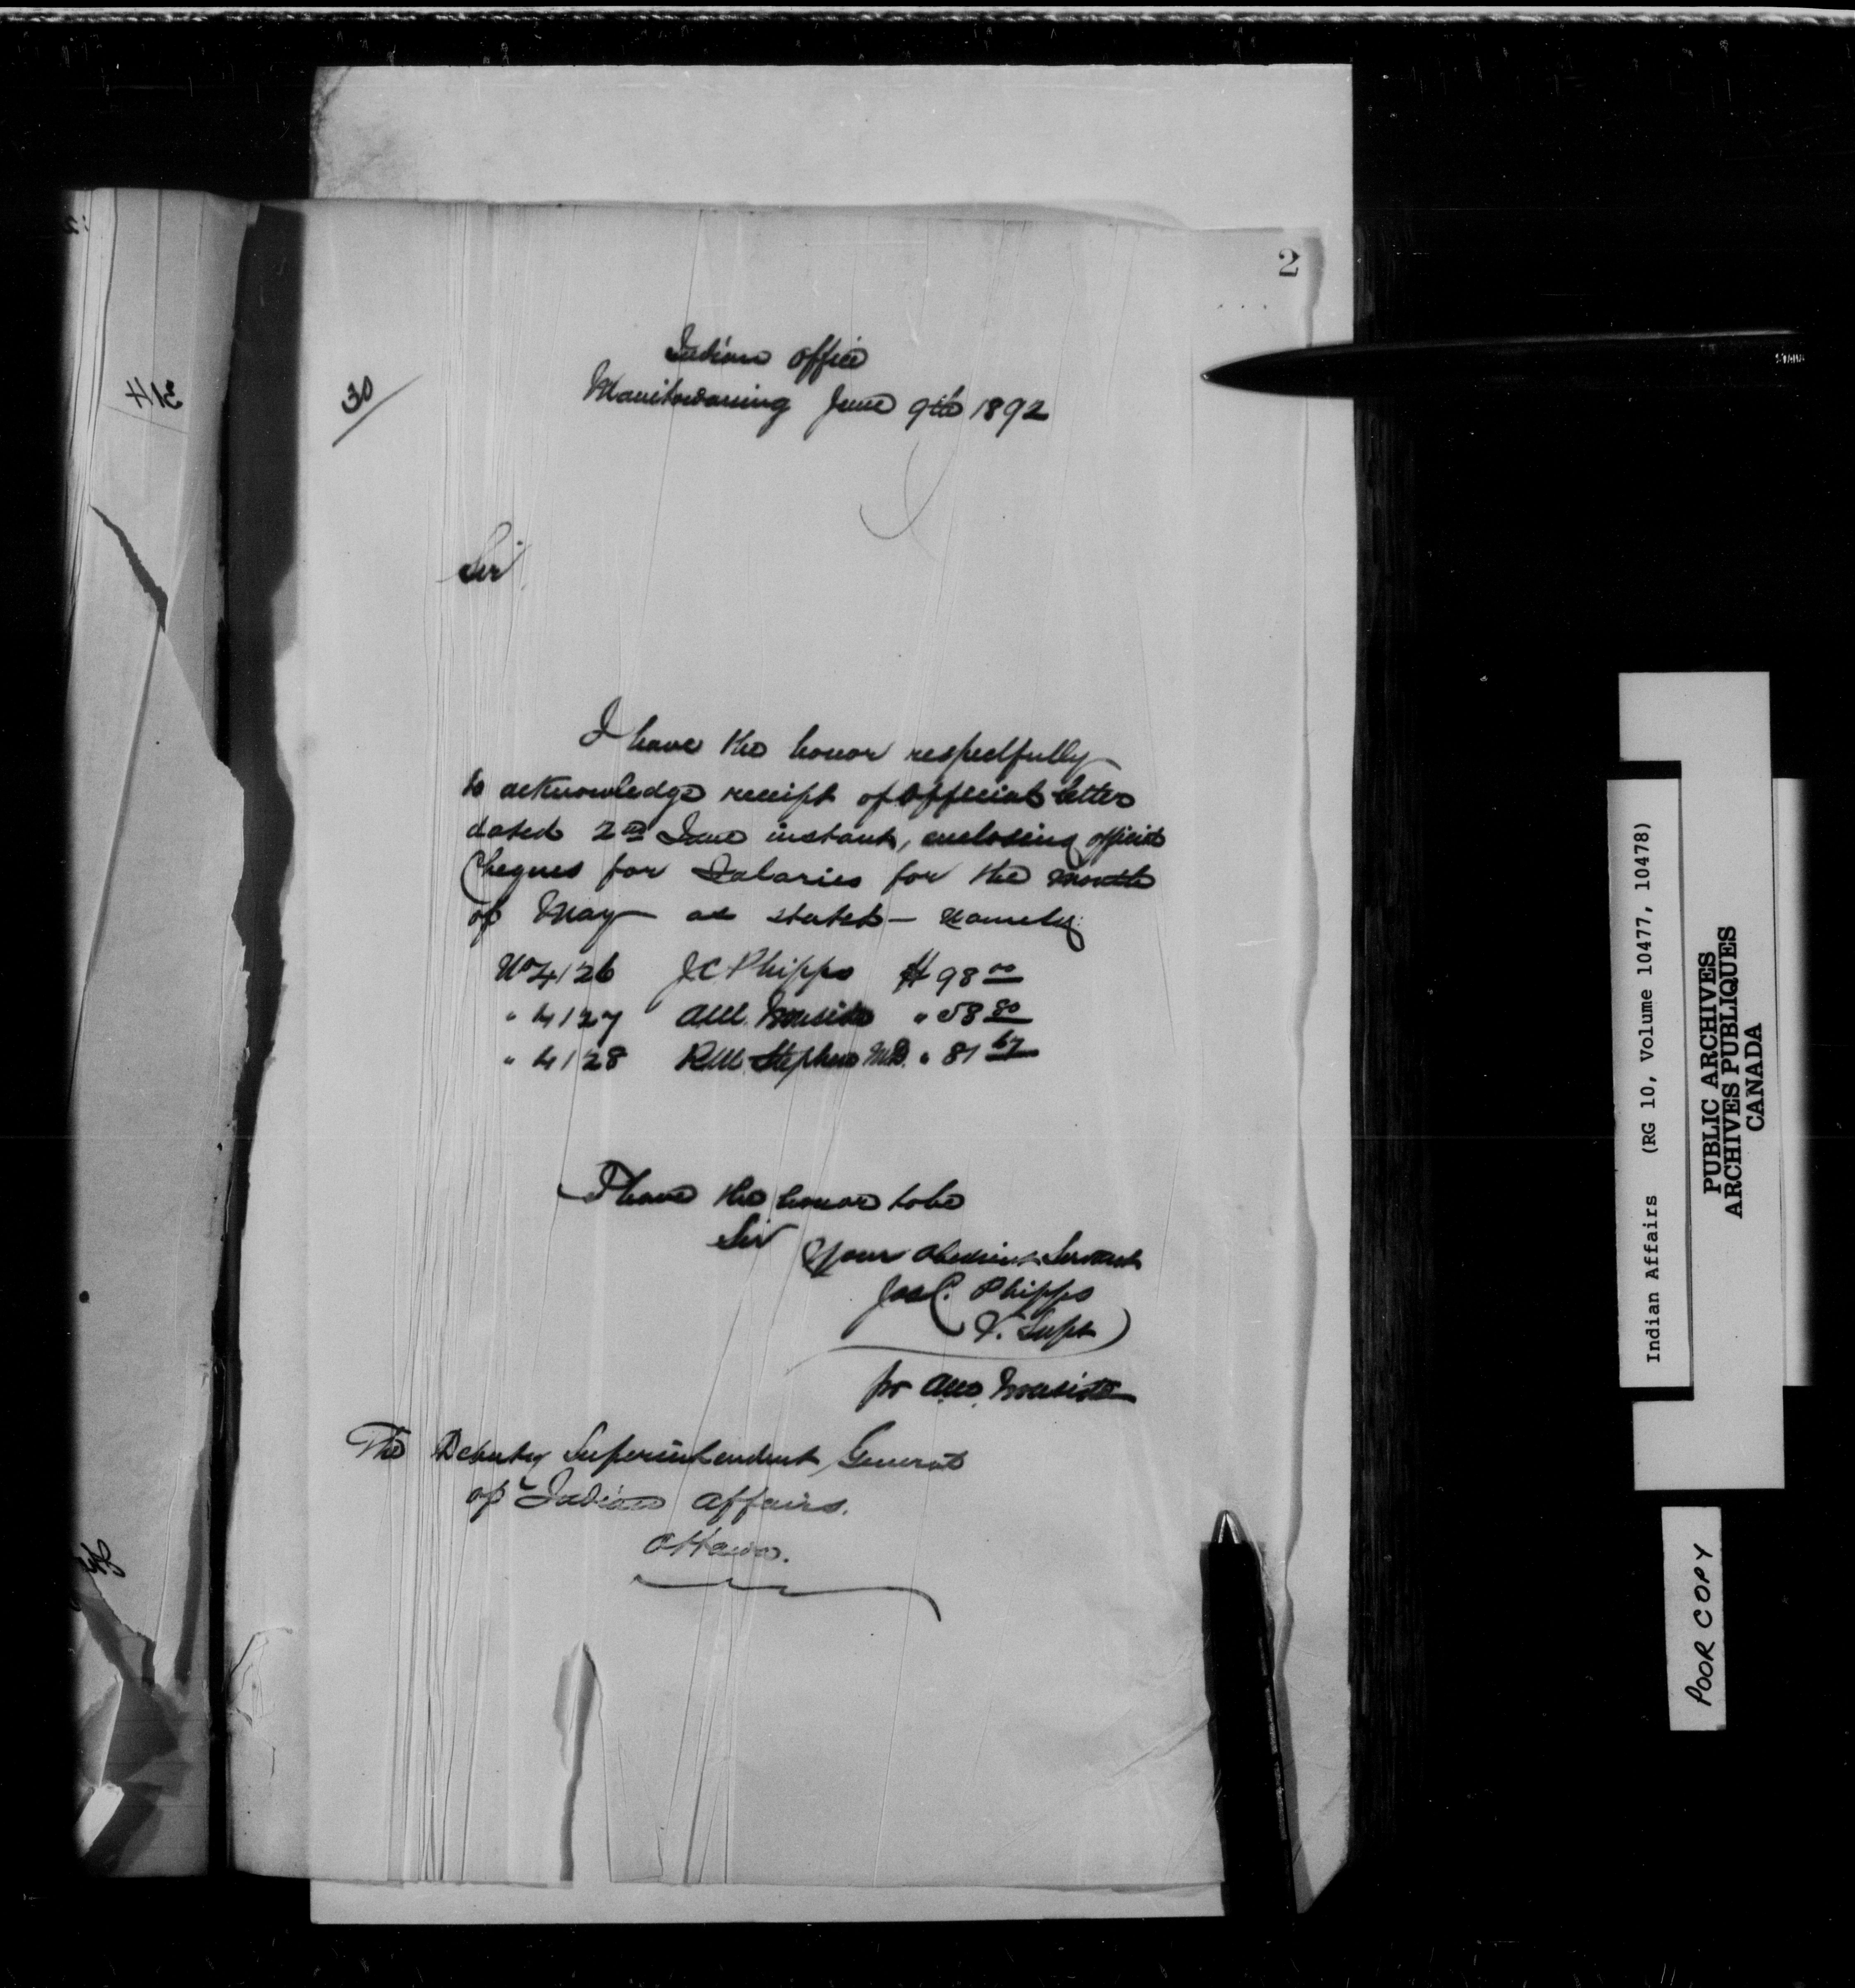 2
30
Indian Office
Manitowaning June 9th 1892
Sir
I have the honor respectfully
to acknowledge receipt of official letter
dated 2nd June instant, enclosing official
Cheques for Salaries for the month
of May as stated - namely:
No 4126 J C Phipps $ 98 00
" 4127 A.M. Ironside " 58 80
" 4128 R.M. Stephen M.D. " 81 67
I have the honor to be
Sir
Your obedient Servant
Jas C. Phipps
(V. Supt)
pr A.M. Ironside
The Deputy Superintendent General
of Indian Affairs.
Ottawa.
314
Indian Affairs (RG 10, Volume 10477, 10478)
PUBLIC ARCHIVES
ARCHIVES PUBLIQUES
CANADA
POOR COPY